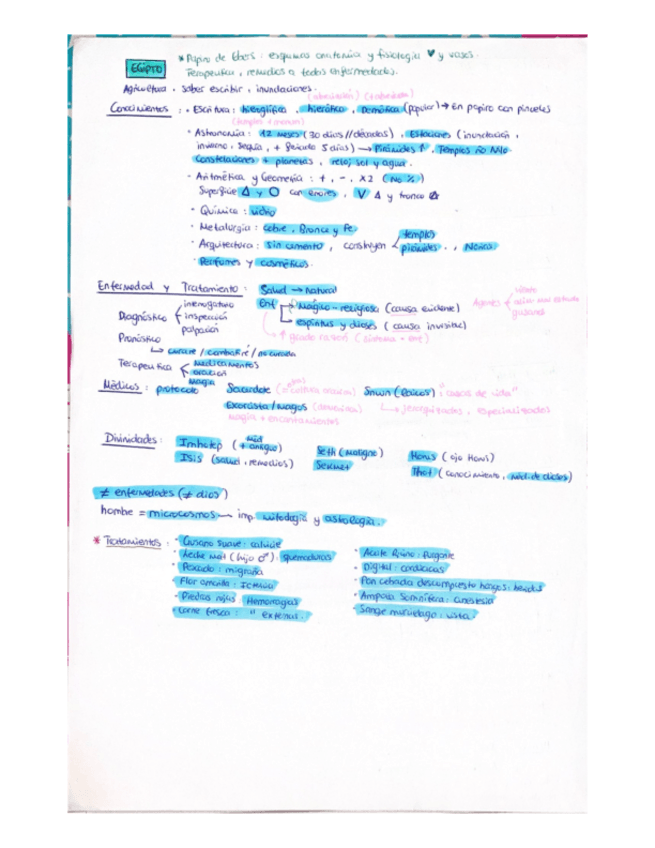 * Papiro de Ebers: esquemas anatomía y fisiología ♥ y vasos.
EGIPTO
Terapeutica, remedios a todas enfermedades.
Agricultura. Saber escribir, inundaciones.
Conocimientos: · Escritura: hieroglífica, hierática, Demótica (popular) → en papiro con pinceles
· Astronomía: 12 meses (30 días//décadas), Estaciones (inundación,
invierno, sequía, + Periodo 5 días) → Pirámides ↑, Templos río Nilo.
Constelaciones + planetas, reloj sol y agua.
· Aritmética y Geometría: +, -, x2 (No %)
Superficie Δ y O con errores, V Δ y tronco
· Química: vidrio
· Metalurgia: cobre, Bronce y Fe.
· Arquitectura: sin cemento, construyen templos
pirámides
· Perfumes y cosméticos.
Enfermedad y Tratamiento: Salud → natural
Enf mágico-religiosa (causa evidente)
espíritus y dioses (causa invisible)
Diagnóstico interrogatorio
inspección
palpación
Pronóstico
↳ curaré / combatiré / no curada
Terapeutica medicamentos
oración
Magia
Médicos: protocolo Sacerdote Snwn (laicos): "casas de vida"
Exorcista/magos ↳ jerarquizados, especializados
magia + encantamientos
Divinidades: Imhotep (Med + antiguo) Seth (maligno) Horus (ojo Horus)
Isis (salud, remedios) Sekmet Thot (conocimiento, méd. de dioses)
≠ enfermedades (≠ dios)
hombre = microcosmos — imp. mitología y astrología.
* Tratamientos: · Gusano suave: calvicie
· Leche mat (hijo ♂): quemaduras
· Pescado: migraña
· Flor amarilla: Ictericia
· Piedras rojas: Hemorragias
· Carne fresca: " external.
· Aceite Ricino: Purgante
· Digital: cardíacas
· Pan cebada descompuesto hongos: heridas
· Amapola Somnífera: anestesia
· Sangre murciélago: vista.